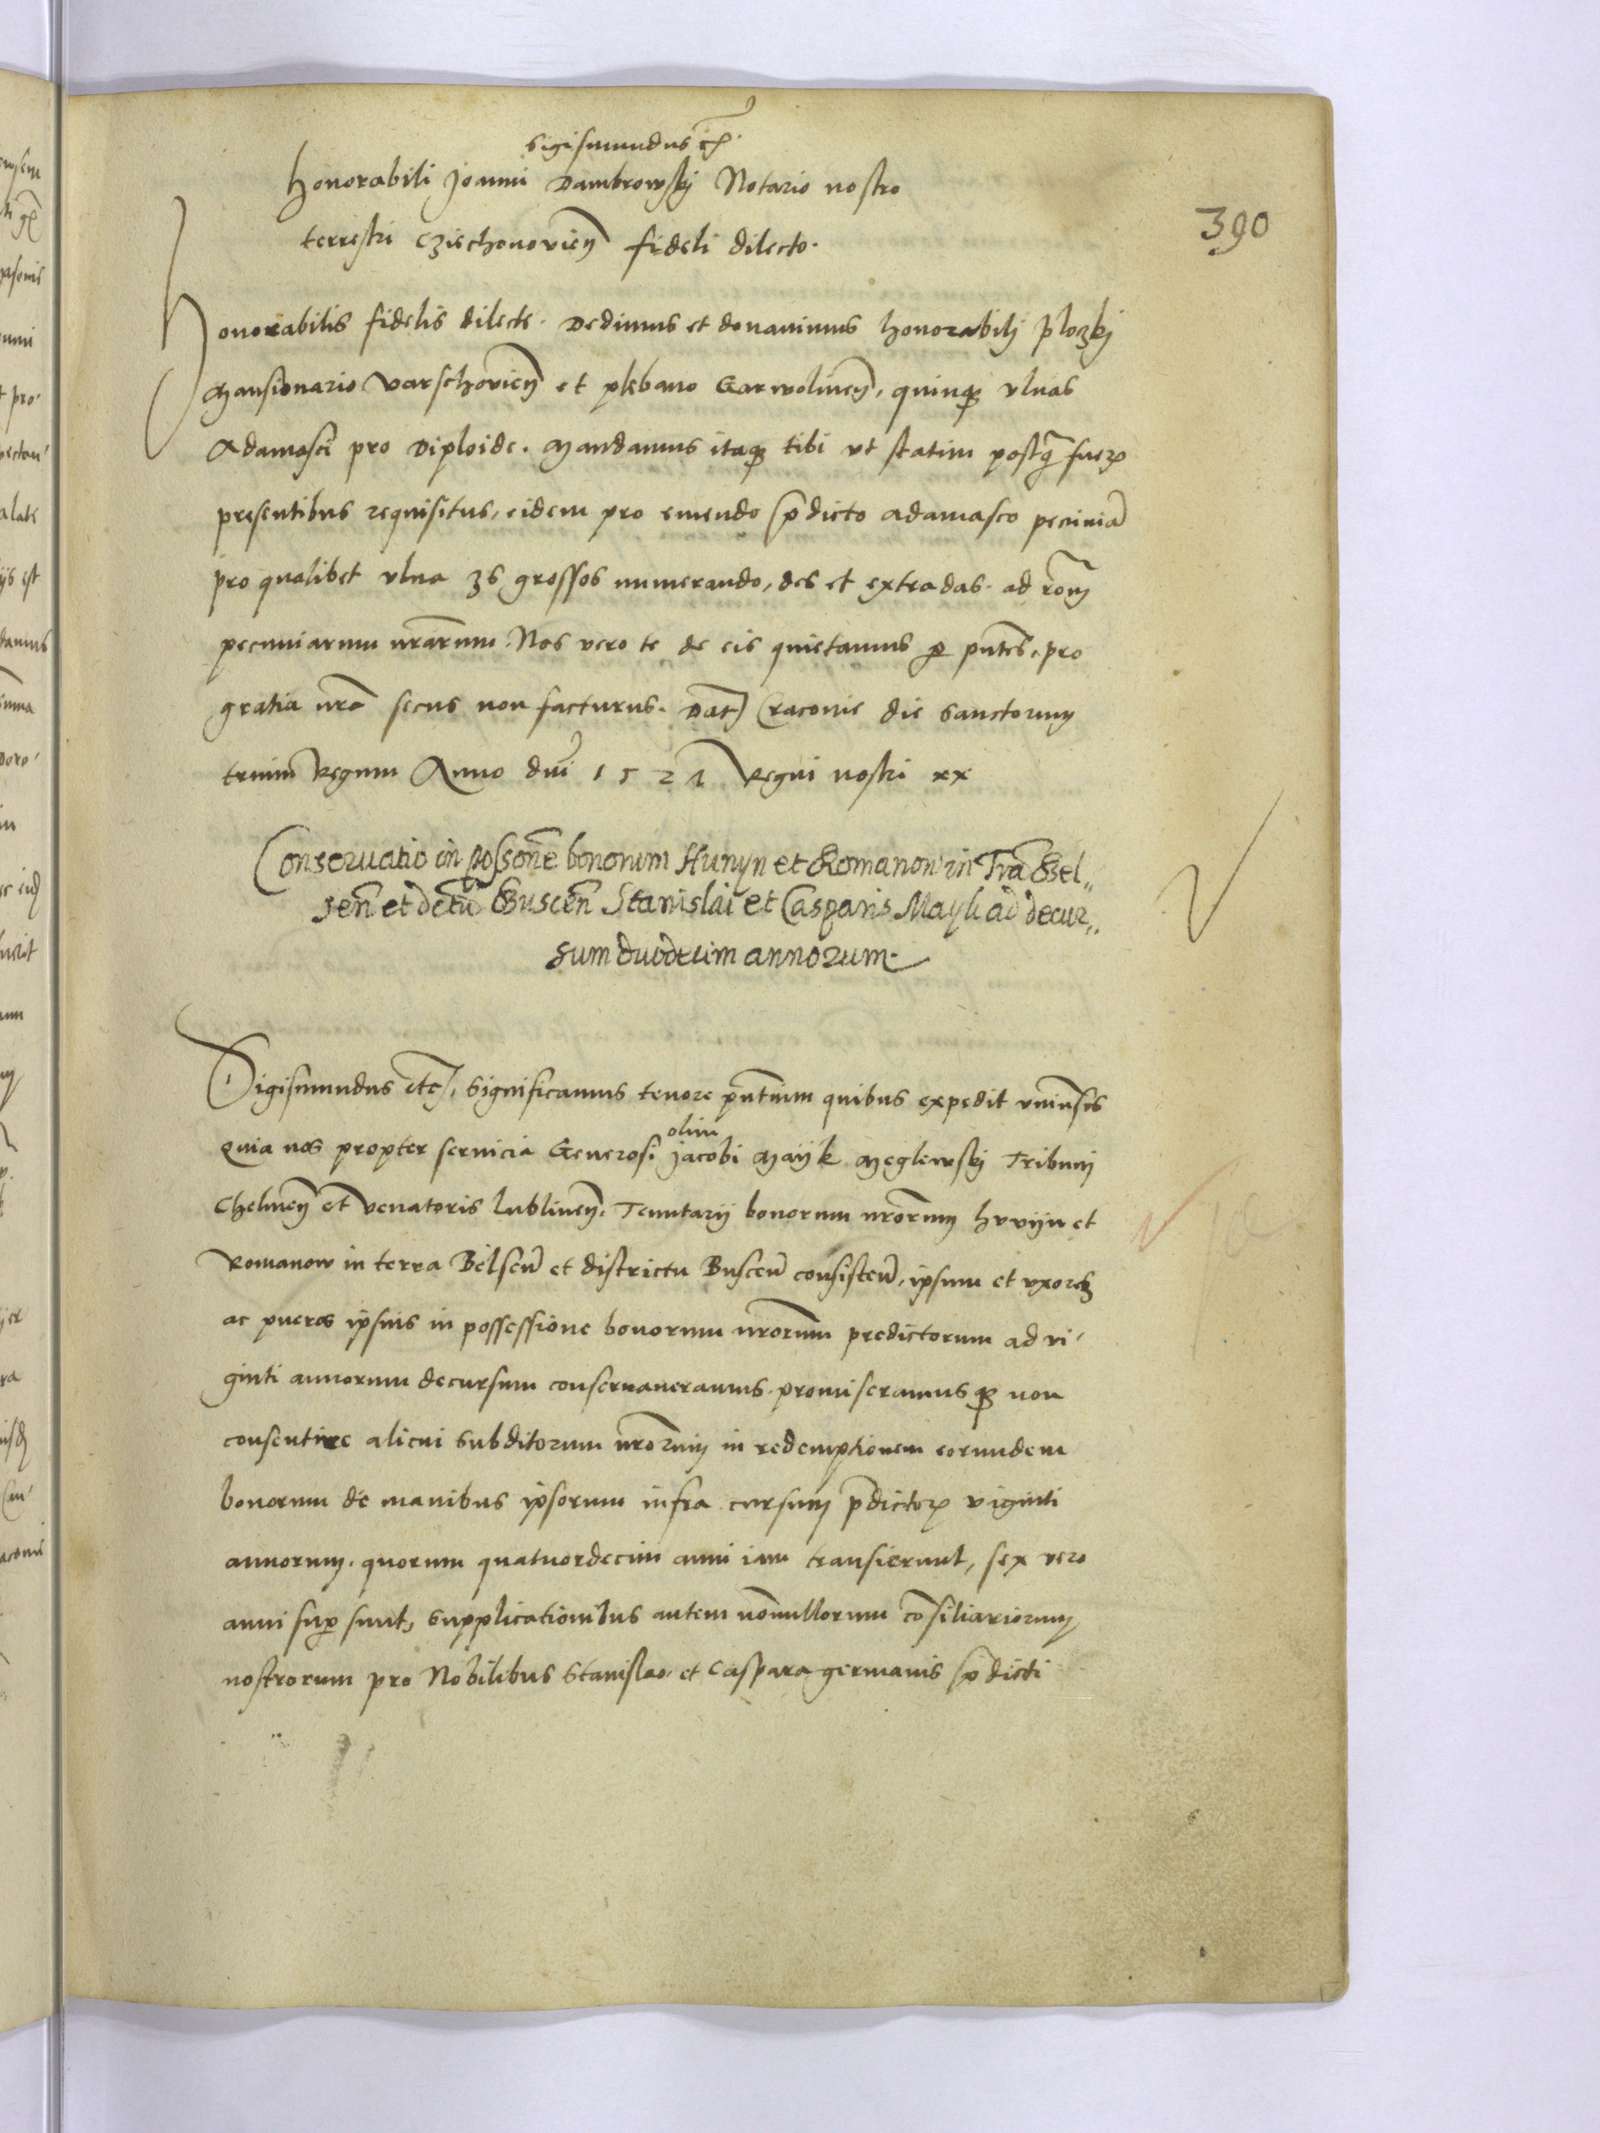 Sigismundus etc.
Honorabili Joanni Dambrowskj Notario nostro
terrestri Cziechonovien fideli dilecto.
390
Honorabilis fidelis dilecte. Dedimus et donavimus honorabilj Ploczkj
Mansionario Varschovien et plebano Garwolinen, quinqz ulnas
Adamasci pro Diploide. Mandamus itaqz tibi ut statim postq̃ fuer
presentibus requisitus, eidem pro emendo p̃dicto adamasco pecuniã
pro qualibet ulna 36 grossos numerando, des et extradas ad rõm
pecuniarum nrãrum. Nos vero te de eis quietamus p pñtes, pro
gratia nrã secus non facturus. Dat Cracovie die Sanctorum
trium Regum Anno dñi 1521 Regni nostri xx
Conservatio in possone bonorum Hunyn et Romanow in Tra Bel„
zen et dctu Buscen Stanislai et Casparis Mayk ad decur„
sum duodecim annorum.
Sigismundus etc, Significamus tenore pñtium quibus expedit univsis
Quia nos propter servicia Generosi olim Jacobi Mayk Meglewskj Tribuni
Chelmen et Venatoris lublinen, Tenutarij bonorum nrorum hvvijn et
Romanow in terra Belsen et districtu Buscen consisten, ipsum et uxorez
ac pueros ipsius in possessione bonorum nrorum predictorum ad vi-
ginti annorum decursum conservaveramus. promiseramusqz non
consentire alicui Subditorum nrorum in redemptionem eorundem
bonorum de manibus ipsorum infra cursum p̃dictor viginti
annorum. quorum quatuordecim anni iam transierunt, sex vero
anni sup sunt, Supplicationibus autem nonnullorum cõsiliariorum
nostrorum pro Nobilibus Stanislao et Caspara germanis p̃dicti